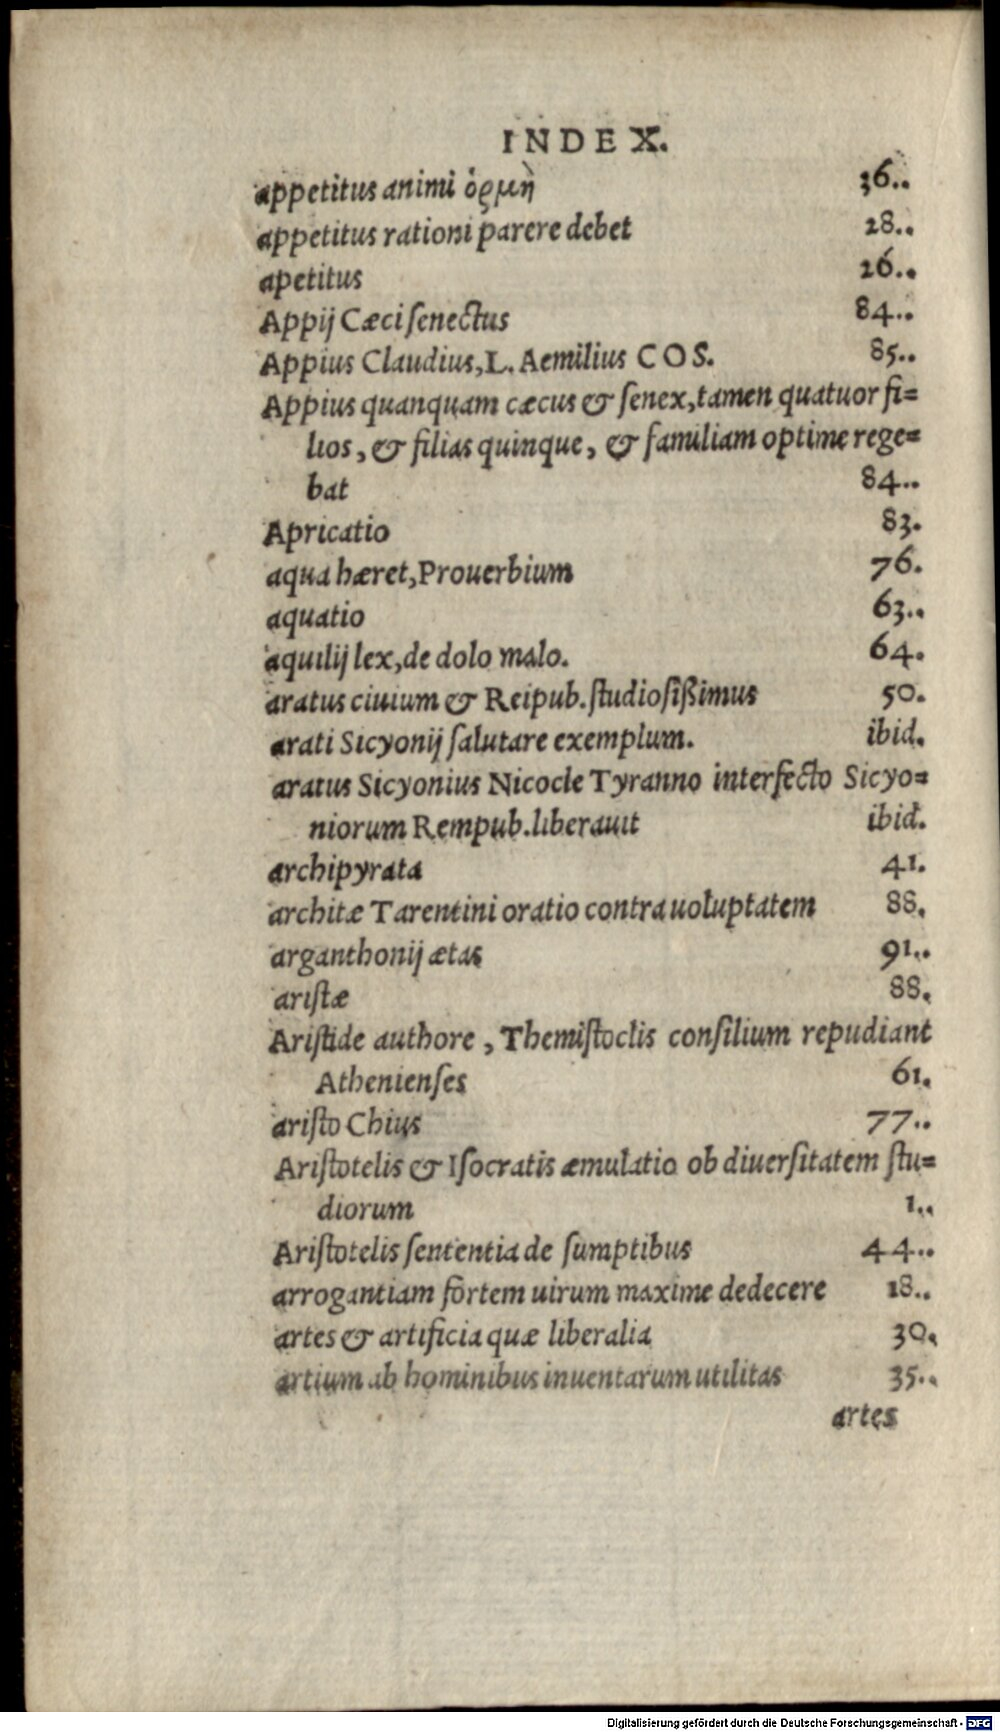 INDEX.
appetitus animi ὁρμὴ 36..
appetitus rationi parere debet 28..
apetitus 26..
Appij Cæci ſenectus 84..
Appius Claudius, L. Aemilius COS. 85..
Appius quanquam cæcus & ſenex, tamen quatuor fi=
lios, & filias quinque, & familiam optime rege=
bat 84..
Apricatio 83.
aqua hæret, Prouerbium 76.
aquatio 63..
aquilij lex, de dolo malo. 64.
aratus ciuium & Reipub. ſtudioſißimus 50.
arati Sicyonij ſalutare exemplum. ibid.
aratus Sicyonius Nicocle Tyranno interfecto Sicyo=
niorum Rempub. liberauit ibid.
archipyrata 41.
architæ Tarentini oratio contra uoluptatem 88.
arganthonij ætas 91..
ariſtæ 88.
Ariſtide authore, Themiſtoclis conſilium repudiant
Athenienſes 61.
ariſto Chius 77..
Ariſtotelis & Iſocratis æmulatio ob diuerſitatem ſtu=
diorum 1..
Ariſtotelis ſententia de ſumptibus 44..
arrogantiam fortem uirum maxime dedecere 18..
artes & artificia quæ liberalia 30.
artium ab hominibus inuentarum utilitas 35..
artes
Digitalisierung gefördert durch die Deutsche Forschungsgemeinschaft - DFG